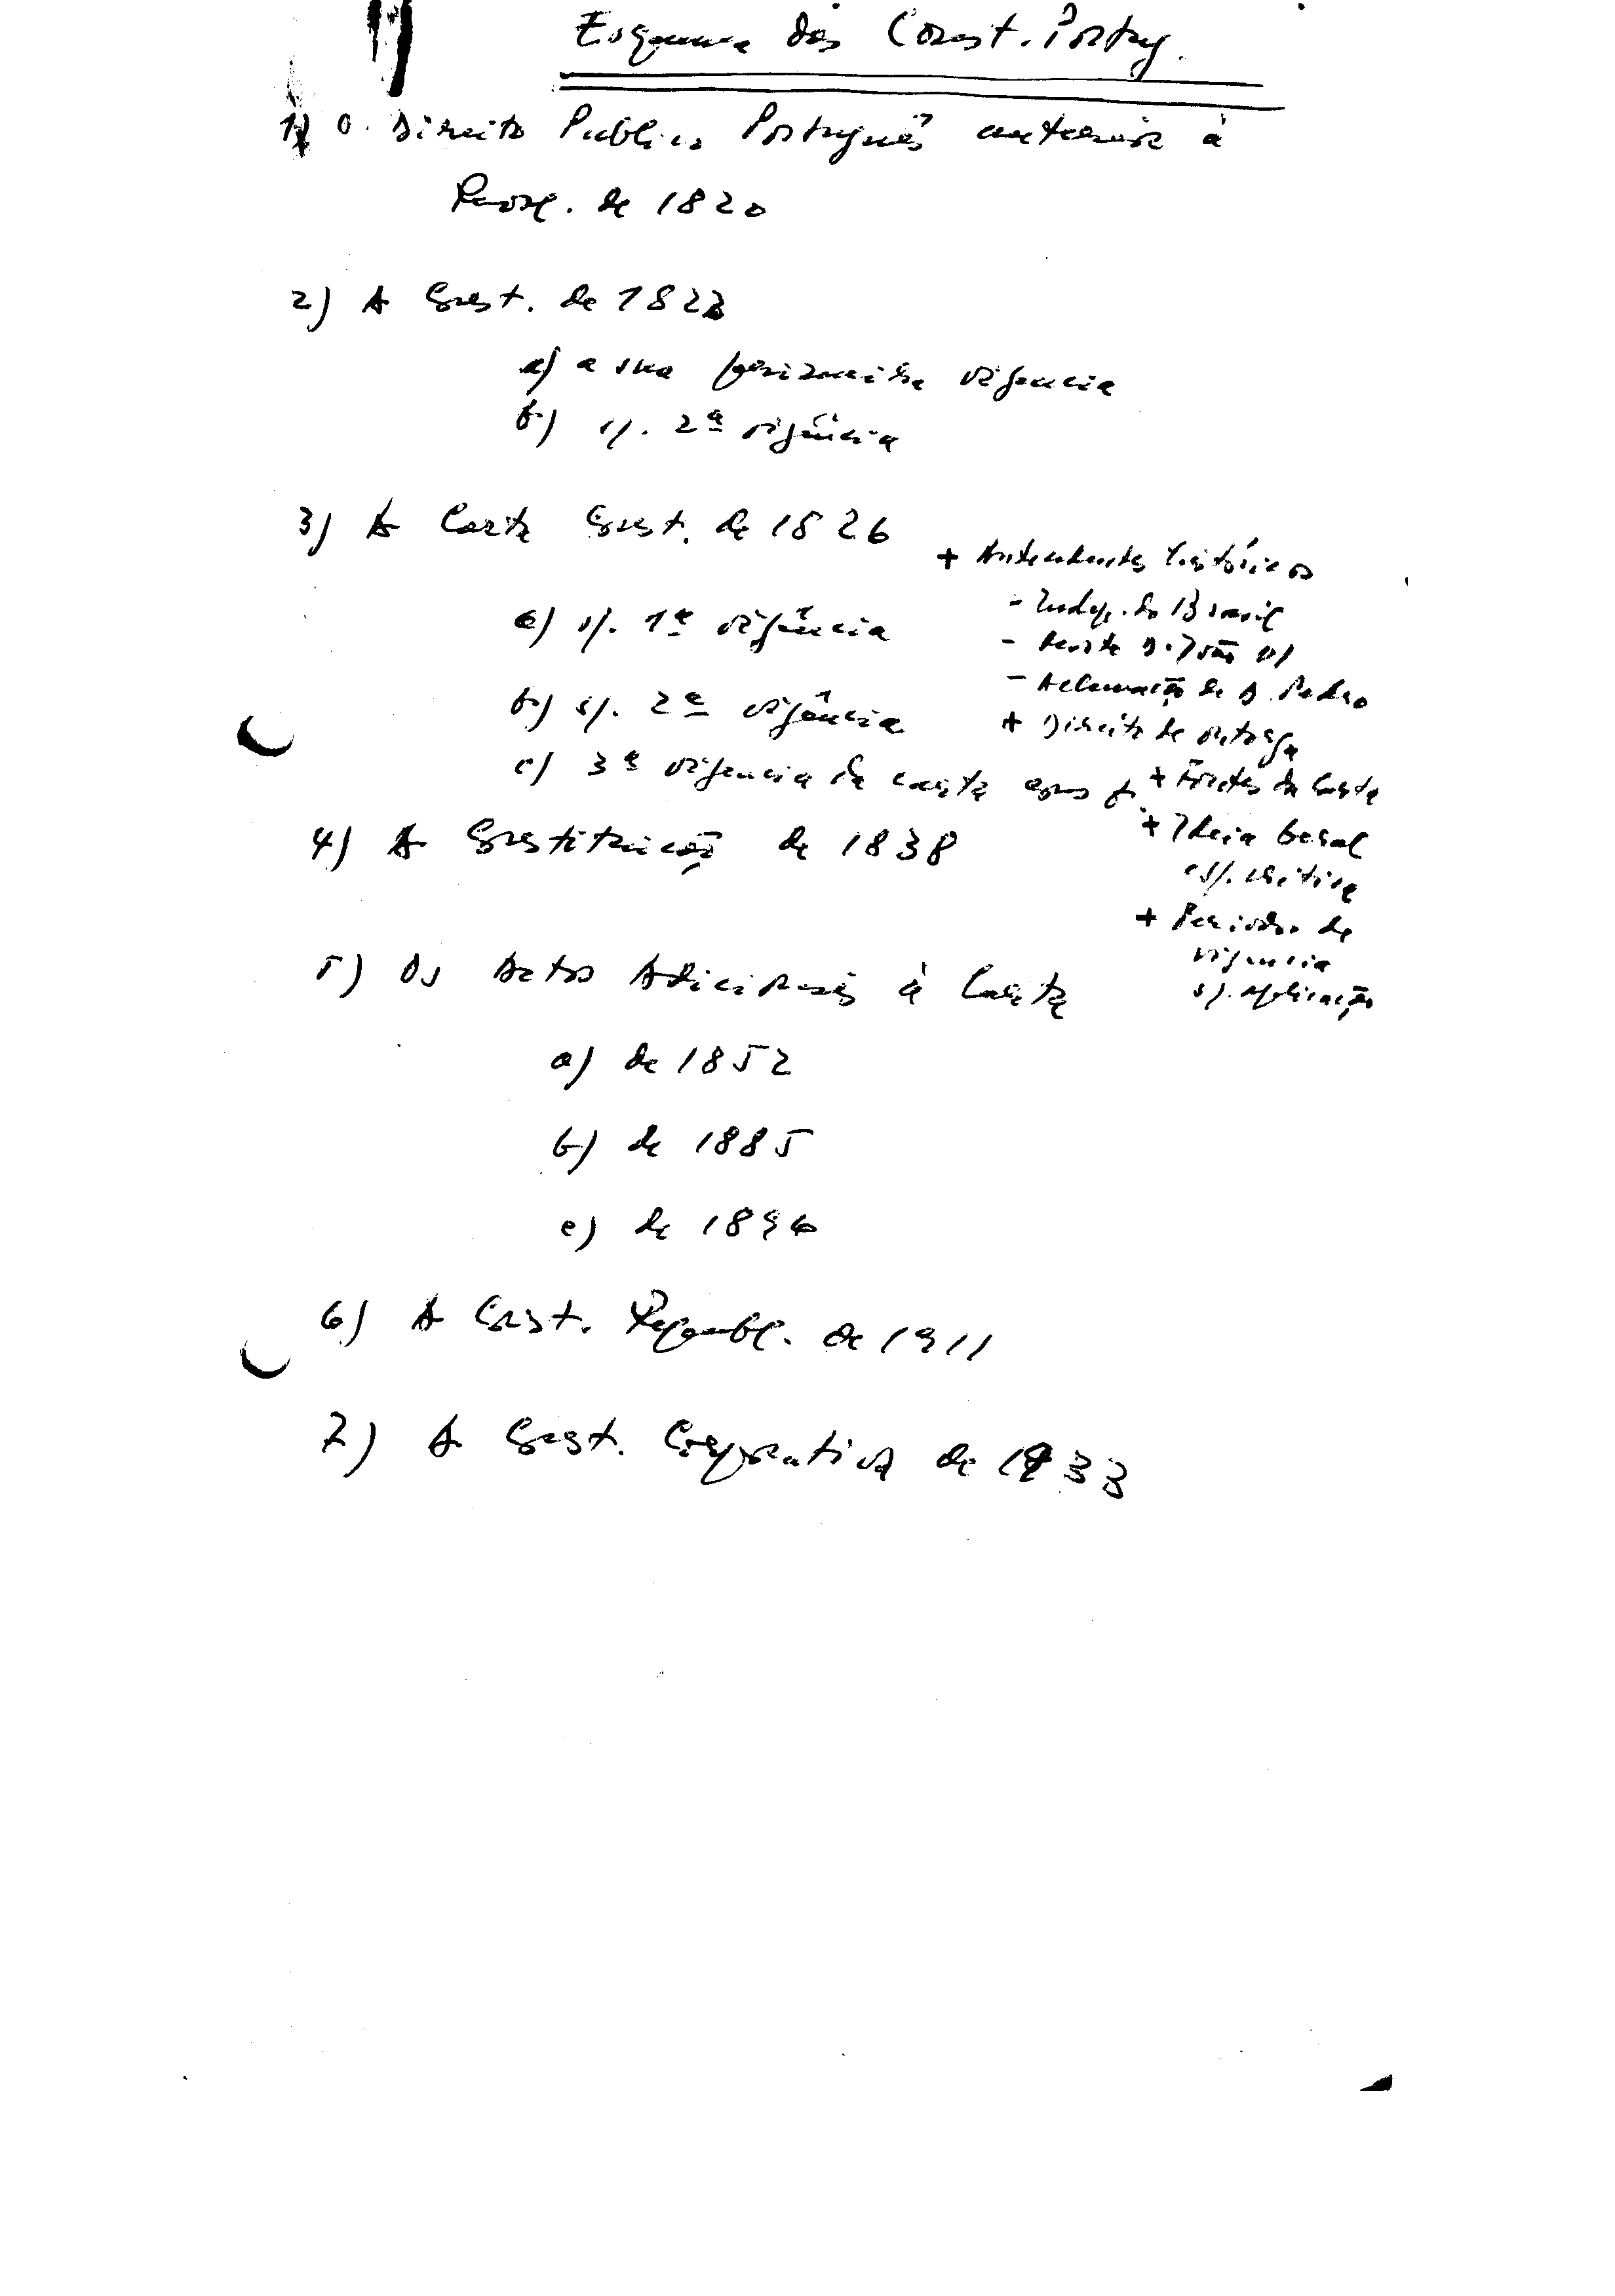 Esquema das Const. Portug.
1) O Direito Publico Português anterior à
Revol. de 1820
2) A Const. de 1822
a) a sua primeira vigencia
b) s/. 2ª vigência
3) A Carta Const. de 1826
+ Antecedentes históricos
- Indep. do Brasil
- Morte D. João VI
- Aclamação de D. Pedro
+ Direito de outorga
+ Fontes da Carta
+ Ideia Geral
e s/. critica
+ Periodos de
vigencia
s/. aplicação
a) s/. 1ª vigência
b) s/. 2ª vigência
c) 3ª vigencia da carta
4) A Constituição de 1838
5) Os Actos Adicionais à Carta
a) de 1852
b) de 1885
c) de 1896
6) A Const. Republ. de 1911
7) A Const. Corporativa de 1933